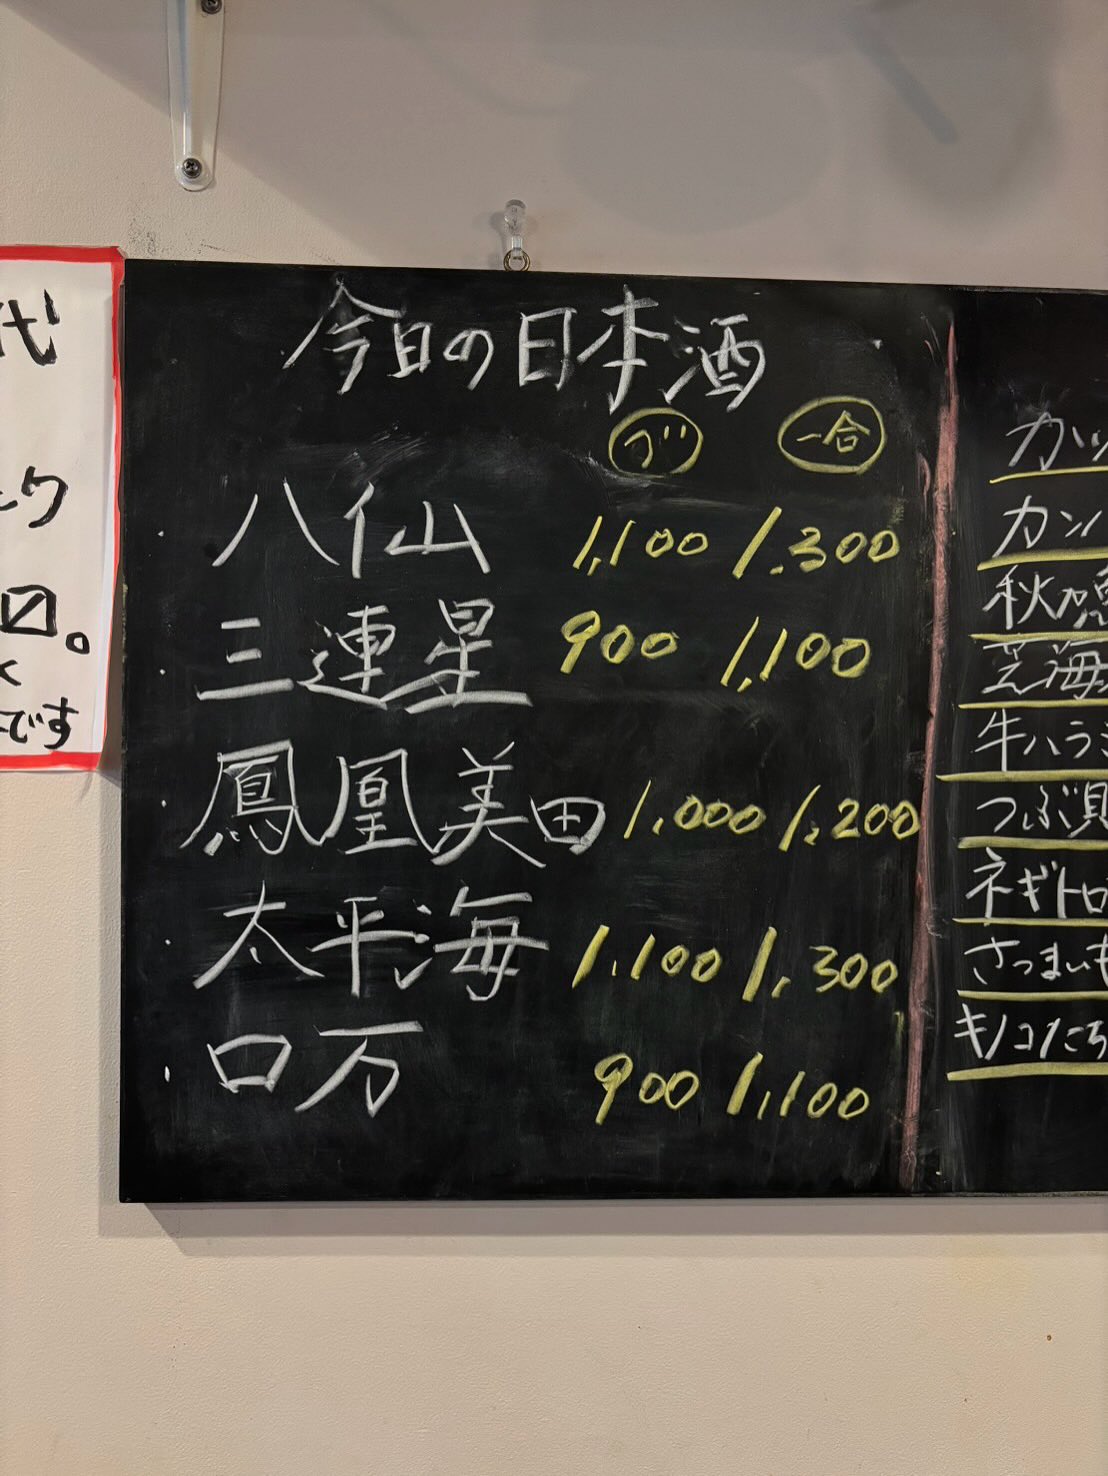 代
ク
です
今日の日本酒
グ 一合
八仙 1,100 1.300
三連星 900 1,100
鳳凰美田 1.000 1.200
太平海 1.100 1.300
ロ万 900 1,100
カッ
カン
秋刀魚
牛ハラミ
つぶ貝
ネギトロ
さつまいも
キノコたち